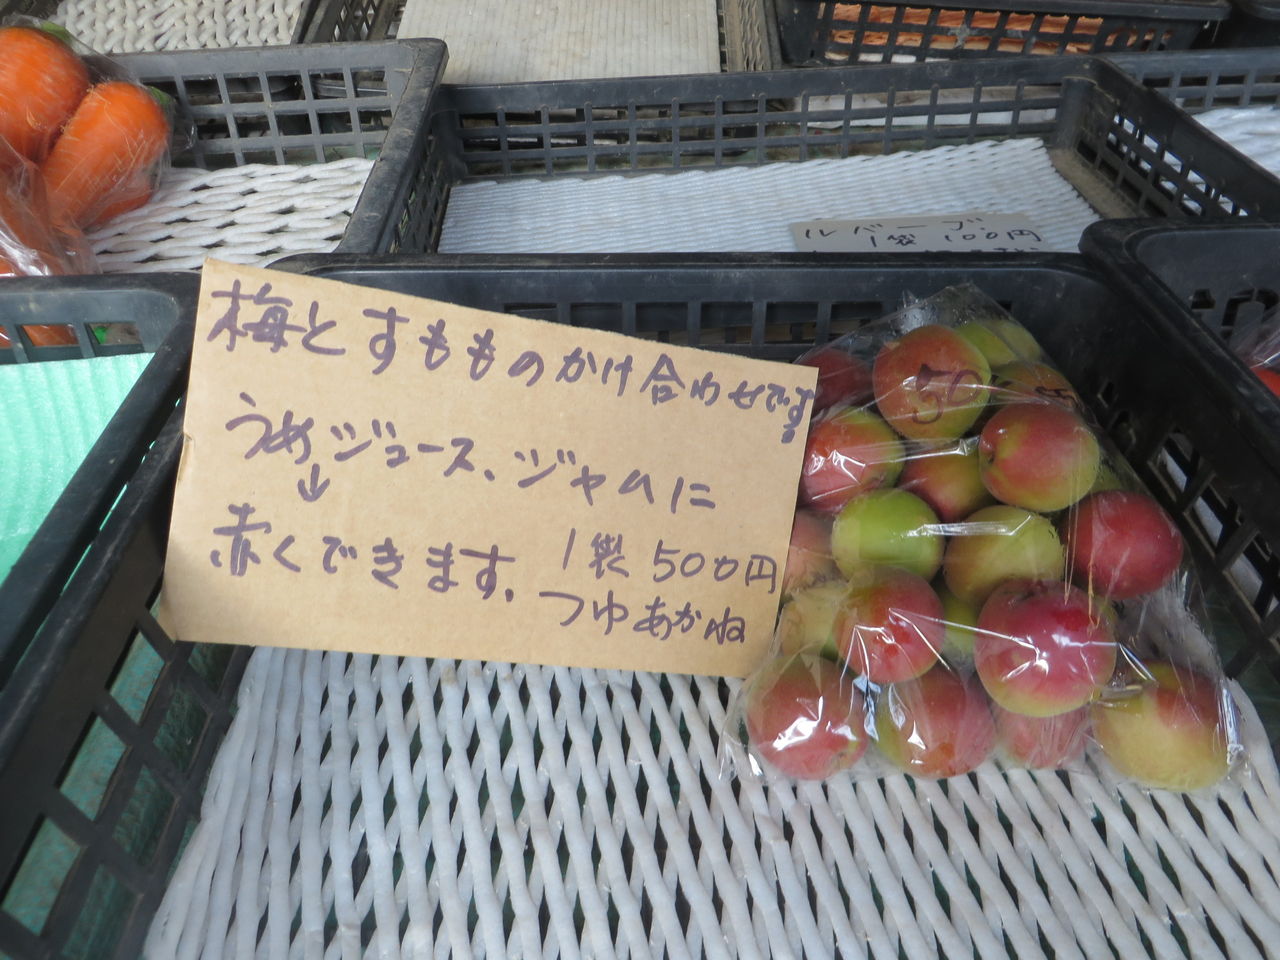 ルバーブ.
1袋 100円
梅とすもものかけ合わせです。
うめジュース、ジャムに
↓
赤くできます. 1袋 500円
つゆあかね
50